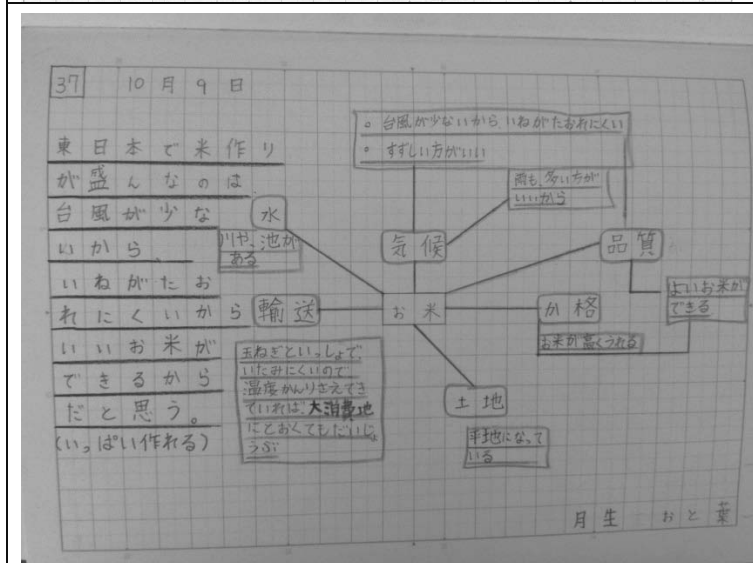 37 10月9日
東日本で米作り
が盛んなのは
台風が少な
いから、
いねがたお
れにくいから
いいお米が
できるから
だと思う。
(いっぱい作れる)
• 台風が少ないから いねがたおれにくい
• すずしい方がいい
雨も、多い方が
いいから
水
川や、池が
ある
気候
品質
よいお米が
できる
輸送
お米
か格
お米が高くうれる
玉ねぎといっしょで、
いたみにくいので
温度かんりさえでき
ていれば、大消費地
にとおくてもだいじょ
うぶ
土地
平地になって
いる
月生 おと葉